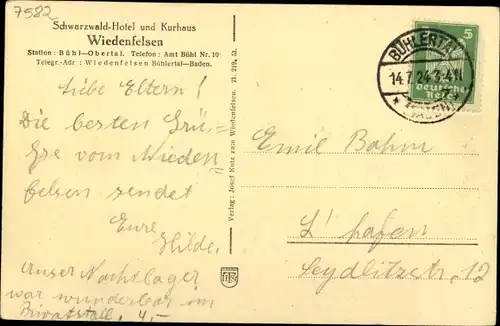 7582
Schwarzwald-Hotel und Kurhaus
Wiedenfelsen
Station: Bühl-Obertal. Telefon: Amt Bühl Nr. 10
Telegr.-Adr: Wiedenfelsen Bühlertal-Baden.
Liebe Eltern!
Die besten Grü-
sse vom Wieden
felsen sendet
Eure
Hilde.
Unser Nachtlager
war wunderbar im
Privatstall. 4,-
Verlag: Josef Kotz zum Wiedenfelsen. 21. 219. 51.
5
Deutsches
Reich
BÜHLERTAL
14.7.24.3-4N
* (BADEN)
Emil Bohm
L'hafen
Seydlitzstr. 12